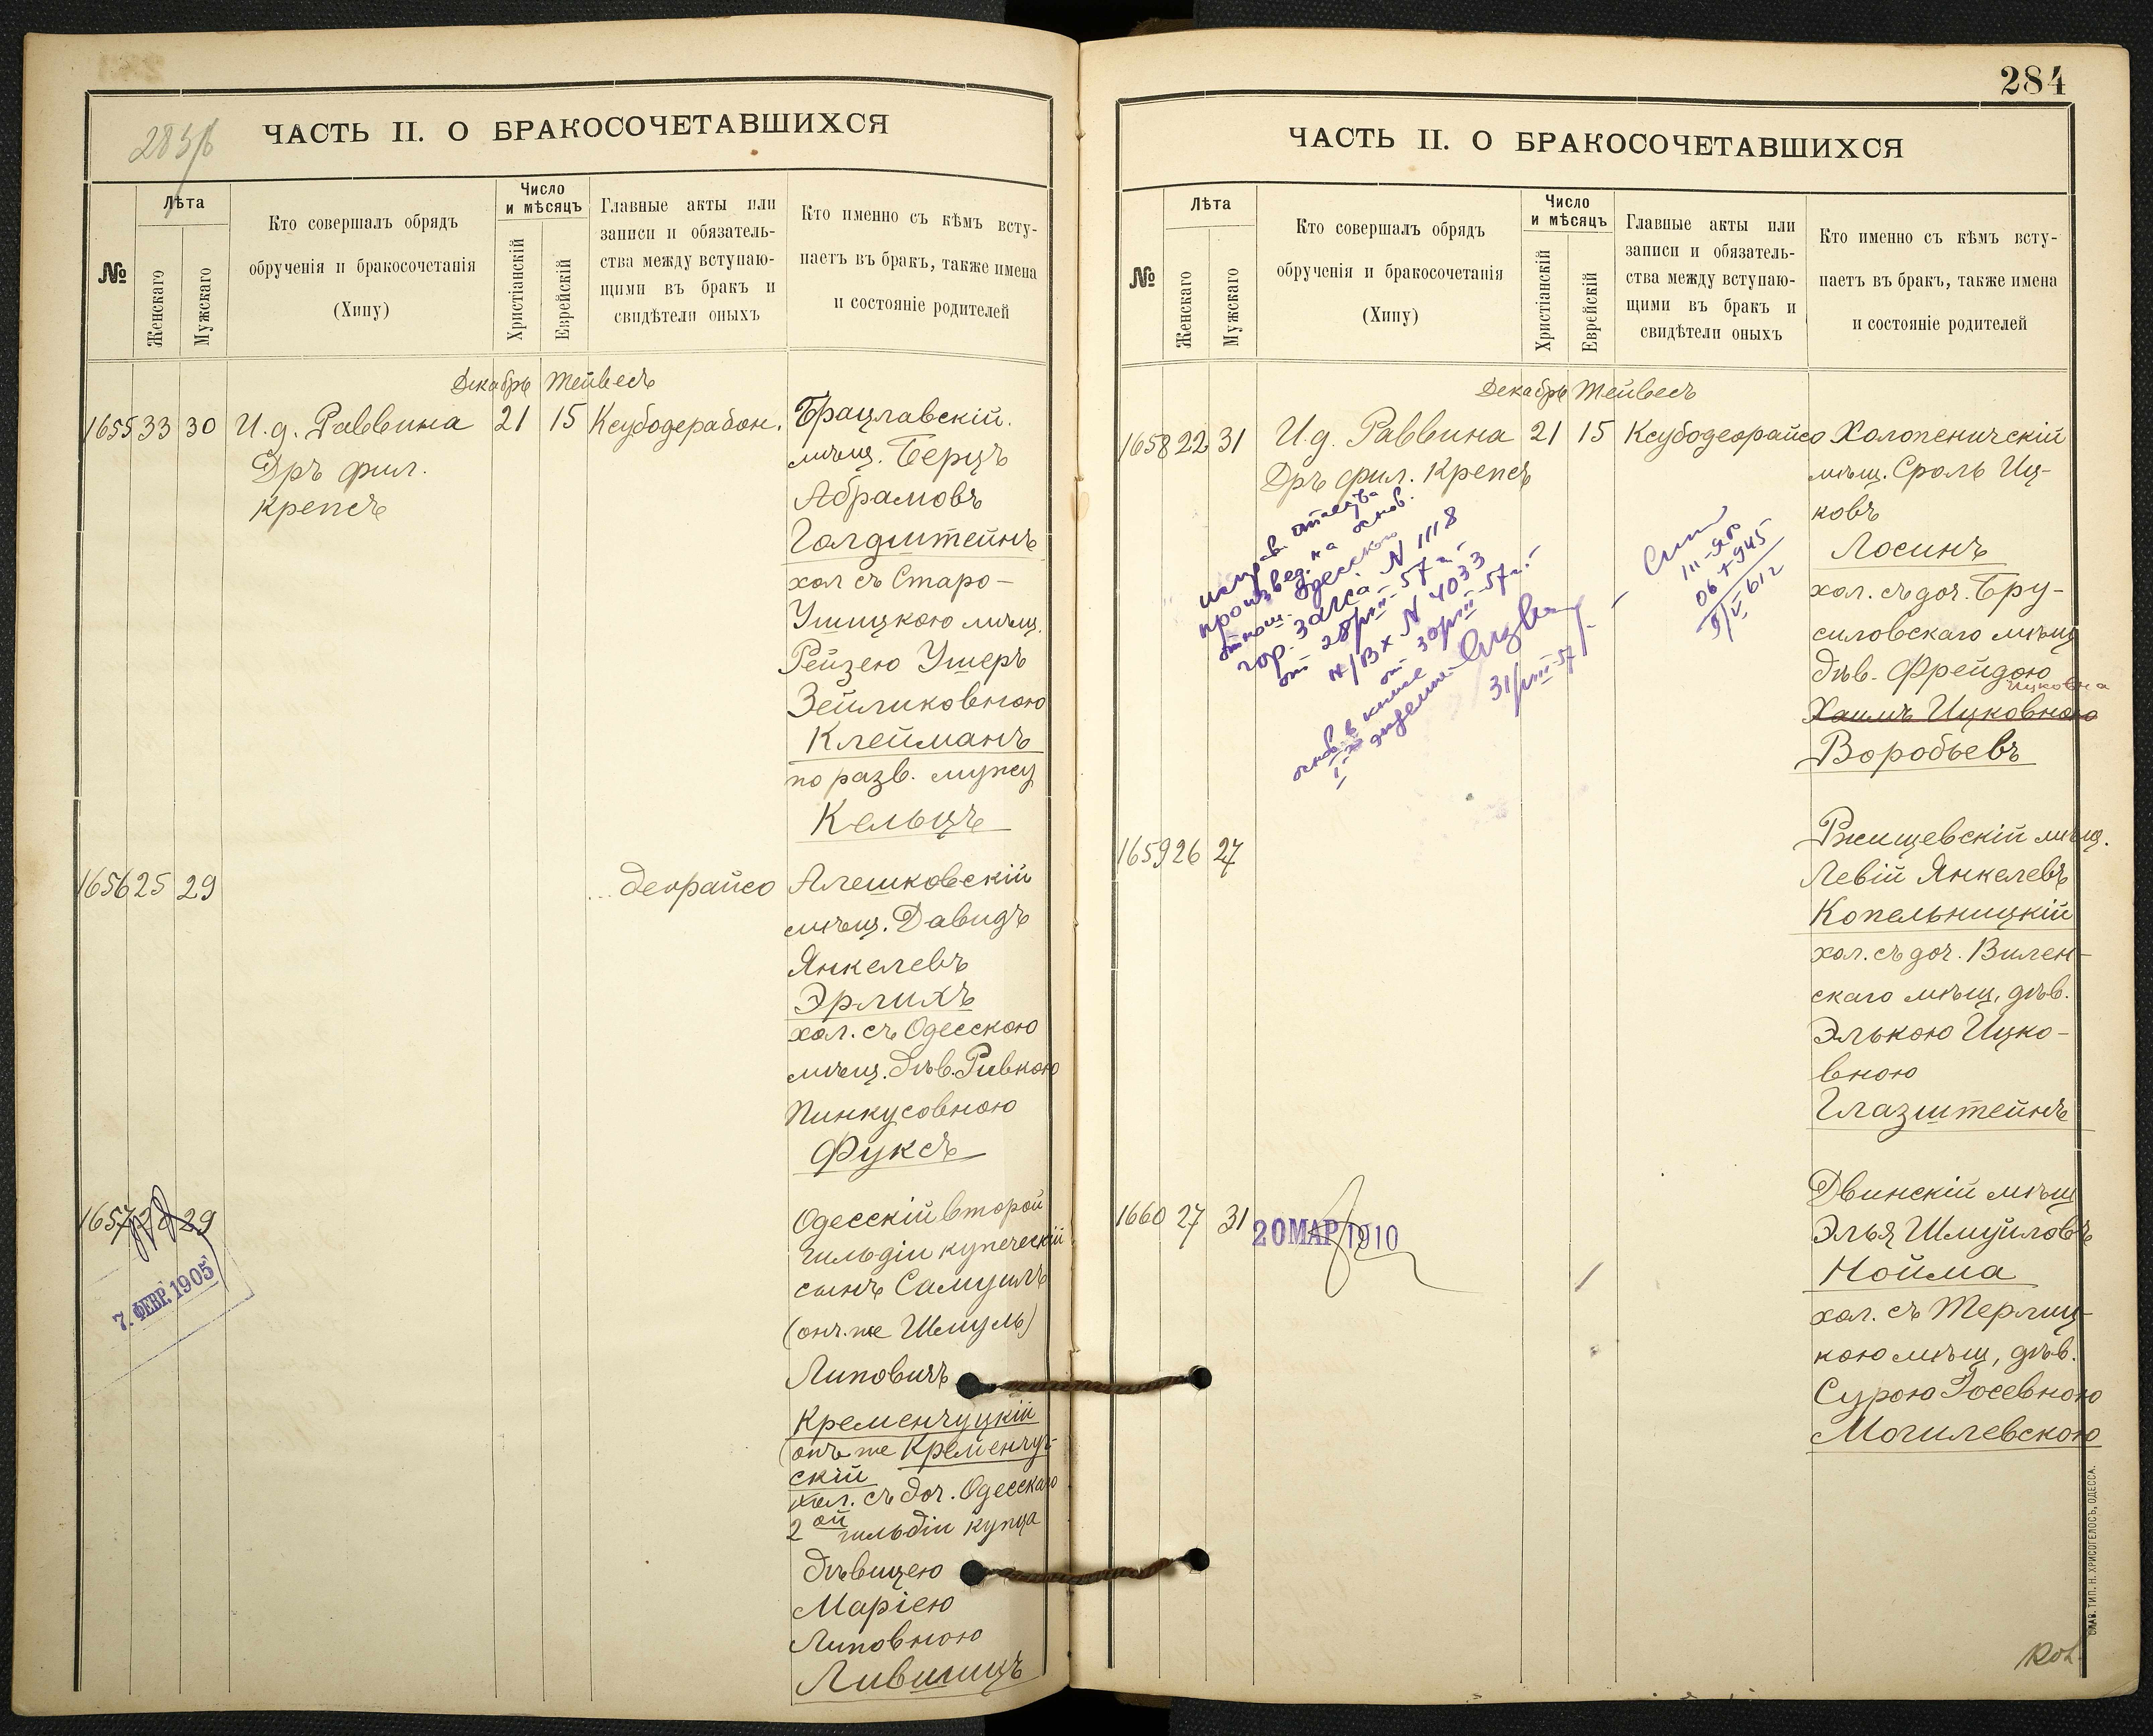 283/б
ЧАСТЬ II. О БРАКОСОЧЕТАВШИХСЯ
№
Лѣта
Женскаго
Мужскаго
Кто совершалъ обрядъ
обрученія и бракосочетанія
(Хипу)
Число
и мѣсяцъ
Христіанскій
Еврейскій
Главные акты или
записи и обязатель-
ства между вступаю-
щими въ бракъ и
свидѣтели оныхъ
Кто именно съ кѣмъ всту-
паетъ въ бракъ, также имена
и состояніе родителей
Декабрь Тейвесъ
1655 33 30 И.д. Раввина 21 15 Ксубодерабон.
Дръ фил.
Крепсъ
Брацлавскій
мѣщ. Берцъ
Абрамовъ
Голдштейнъ
хол съ Старо-
Ушицкою мѣщ.
Рейзею Ушеръ
Зейликовною
Клейманъ
по разв. мужу
Кельцъ
1656 25 29 деорайсо
Алешковскій
мѣщ. Давидъ
Янкелевъ
Эрлихъ
хол. съ Одесскою
мѣщ. дѣв. Ривкою
Пинкусовною
Фуксъ
1657 29
7. ФЕВР. 1905
Одесскій второй
гильдіи купеческій
сынъ Самуилъ
(онъ же Шмуль)
Липовичъ
Кременчуцкій
(онъ же Кременчуг-
скій
хол. съ доч. Одесскаго
2ой гильдіи купца
дѣвицею
Маріею
Липовною
Лившицъ
284
ЧАСТЬ II. О БРАКОСОЧЕТАВШИХСЯ
№
Лѣта
Женскаго
Мужскаго
Кто совершалъ обрядъ
обрученія и бракосочетанія
(Хипу)
Число
и мѣсяцъ
Христіанскій
Еврейскій
Главные акты или
записи и обязатель-
ства между вступаю-
щими въ бракъ и
свидѣтели оныхъ
Кто именно съ кѣмъ всту-
паетъ въ бракъ, также имена
и состояніе родителей
Декабрь Тейвесъ
1658 22 31 И.д. Раввина 21 15 Ксубодеорайсо
Дръ фил. Крепсъ
исправ. отчества
произвед. на основ.
отнош. Одесского
гор. Загса N 1118
от 28/VIII-57 г.
N/Вх N 4033
от 30/VIII-57 г.
31/VIII-57
III-ЯР
Холопеничскій
мѣщ. Сроль Иц-
ковъ
Лосинъ
хол. съ доч. Бру-
силовскаго мѣщ
дѣв. Фрейдою
Ицковна
Хаимъ Ицковною
Воробьевъ
1659 26 27
Ржищевскій мѣщ.
Левій Янкелевъ
Копельницкій
хол. съ доч. Вилен-
скаго мѣщ, дѣв.
Элькою Ицко-
вною
Глазштейнъ
1660 27 31
20 МАР 1910
Двинскій мѣщ
Элья Шмуйловъ
Нойма
хол. съ Терлиц-
кою мѣщ, дѣв.
Сурою Іосевною
Могилевскою
СЛАВ. ТИП. Н. ХРИСОГЕЛОСЪ, ОДЕССА.